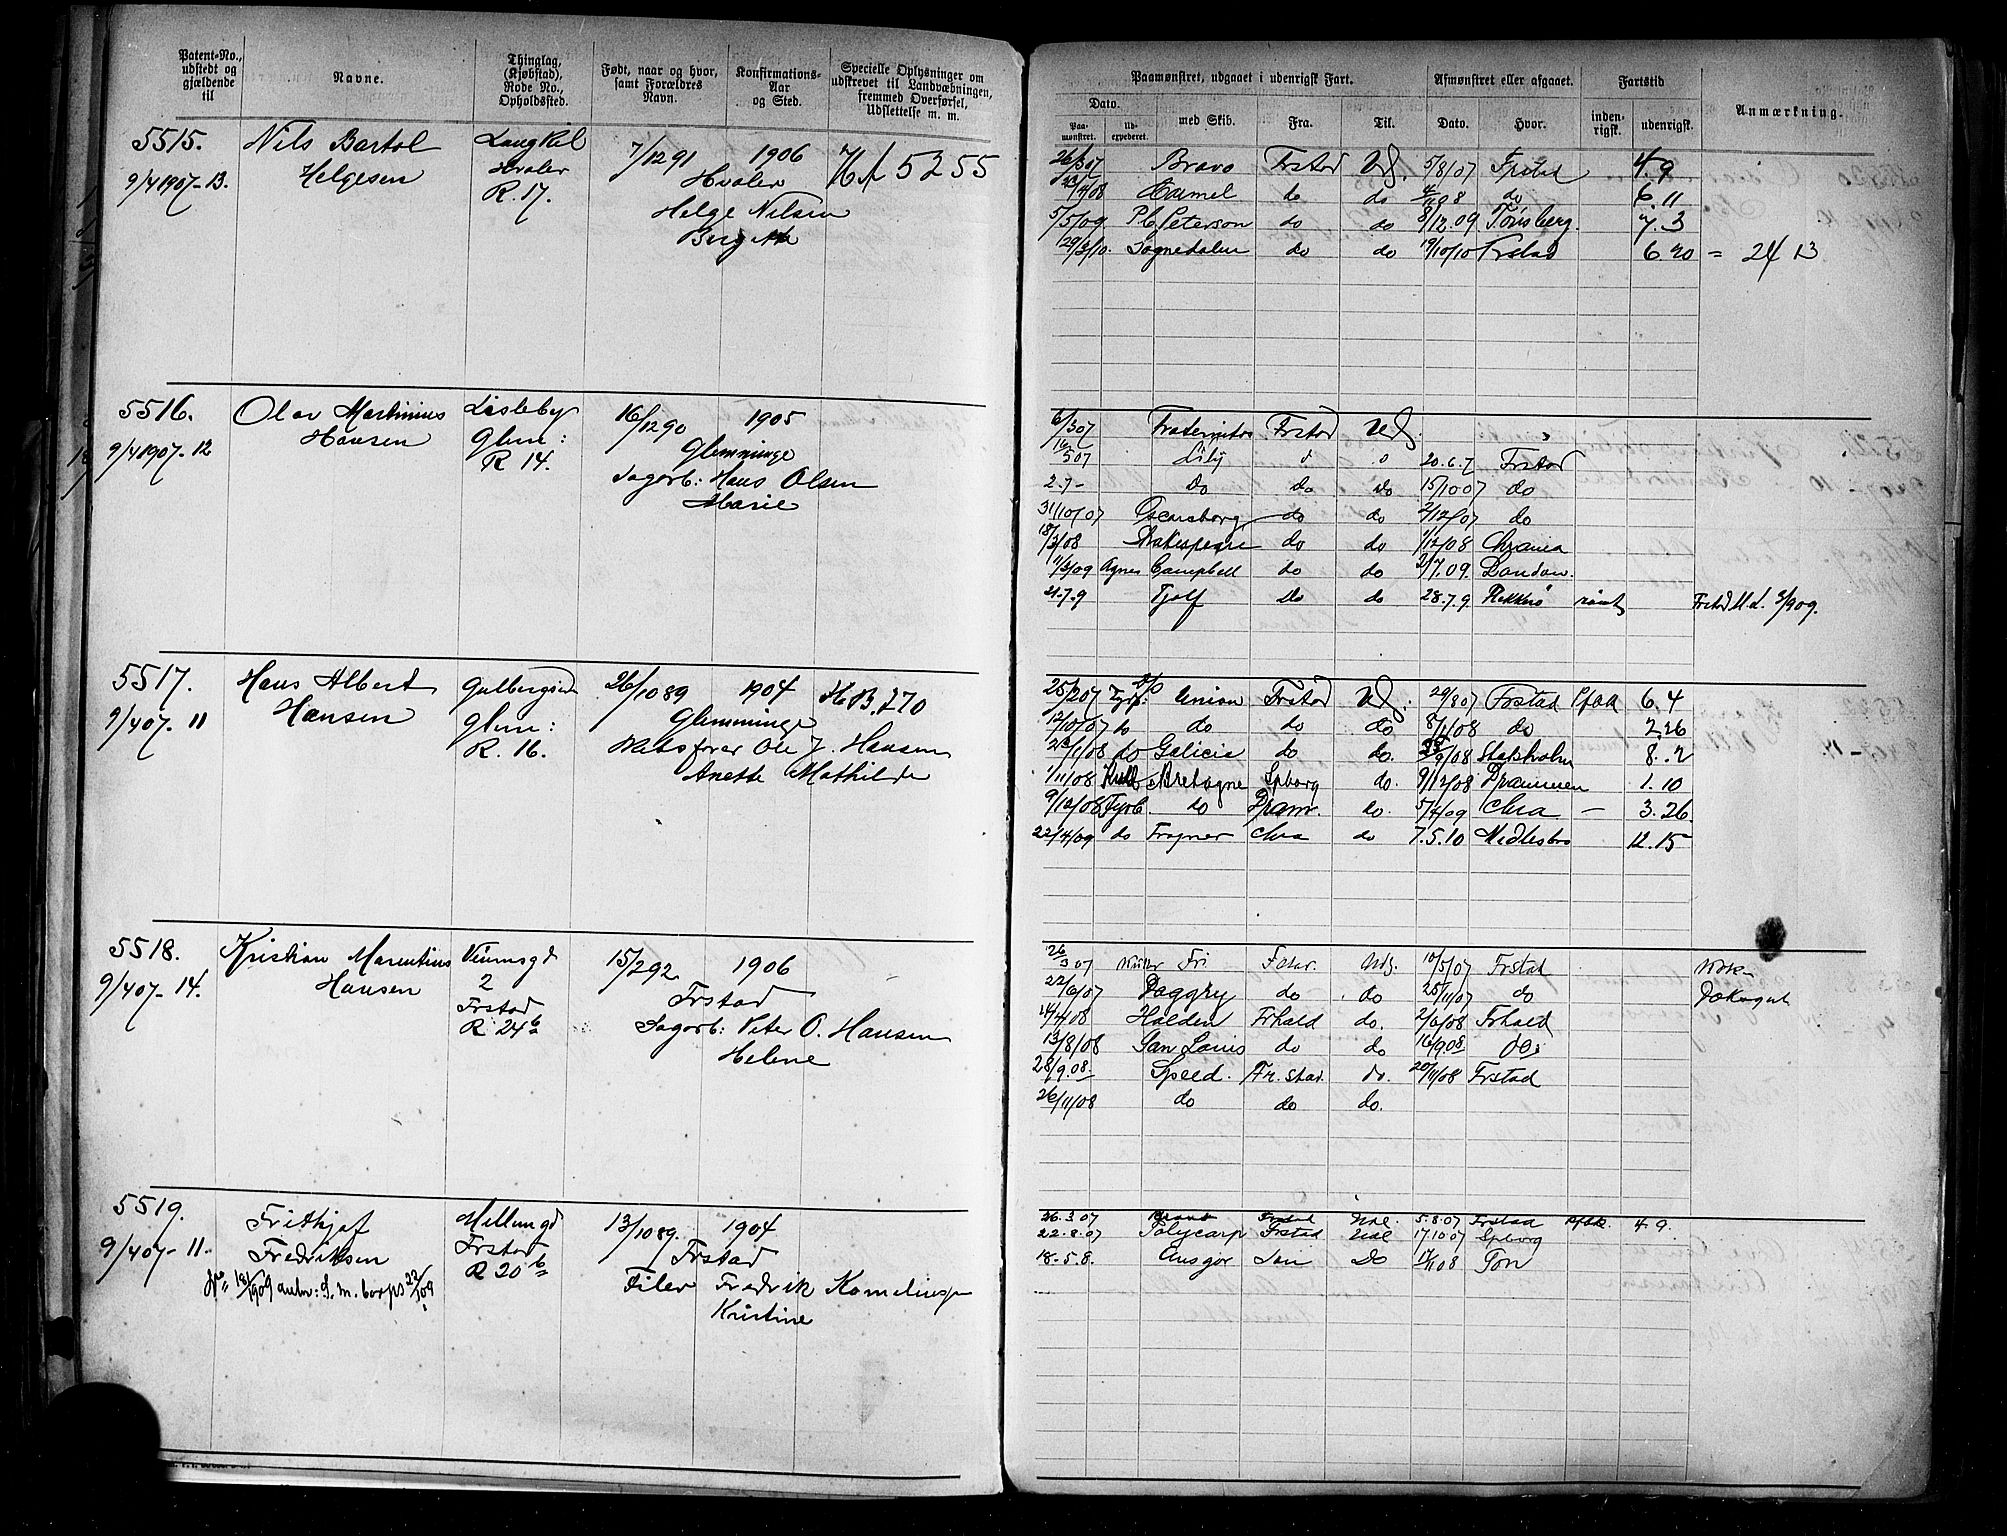 Patent-No., udstedt og gjældende til
Navne.
Thinglag, (Kjøbstad), Rode No., Opholdssted.
Født, naar og hvor, samt Forældres Navn.
Konfirmations-Aar og Sted.
Specielle Oplysninger om udskrevet til Landværbningen, fremmed Overførsel, Udslettelse m. m.
Paamønstret, udgaaet i udenrigsk Fart.
Afmønstret eller afgaaet.
Fartstid
Anmærkning.
Dato.
Paa-mønstret.
Ud-expederet.
med Skib.
Fra.
Til.
Dato.
Hvor.
inden-rigsk.
udenrigsk.
5515. Nils Bartol
Helgesen
9/4 1907-13.
Hvaler
R. 17.
7/12 91 1906
Hvaler
Helge Nilsen
5255
26/3 07 Bravo Frstad Udl. 5/8/07 Frstad 4.9
/4/08 Carmel do do do 6.11
5/5/09 P.C. Peterson do do 8/12.09 Tønsberg. 7.3
29/3/10. Sognedalen do do 19/10/10 Frstad 6.20 = 24 13
5516. Olav Martinius
Hansen
9/4 1907-12
Lisleby
Glem:
R 14.
16/12 90 1905
Glemminge
Dagarb: Hans Olsen
Marie
6/3 07 Fraternitas Frstad Udl.
507 Lily 20.6.7 Frstad
2.7- Do Do Do 15/10 07 do
31/10/07 Oscarsborg do do 2/12/07 do
18/3/08 Shakespeare do do 1/12/08 Chrania
11/3/09 Agnes Campbell do do 2/7.09. London.
21.7.9 Fjolf Do do 28.7.9. Flekkerö rømt Frstad U.d. 3/9 09.
5517. Hans Albert
Hansen
9/4 07-11
Gulbergsid
Glem:
R. 16.
26/10 89 1904 H.B. 270
Glemminge
Ole J. Hansen
Anette Mathilde
25/2 07 Fyrb: D/S Union Frstad Udl: 29/8 07 Frstad 6.4
12/10/07 do do do do 8/1/08 do 2.26
/1/08 do Galicia do do. /9/08 Stokholm 8.2
1/11/08 Bretagne Spborg do. 9/12/08 Drammen 1.10
9/12/08 Fyrb. do Dram. do. 5/4/09 Chra - 3.26.
22/4/09 do Frogner Chra do 7.5.10 Midlesbro 12.15
5518. Kristian Marentius
Hansen
9/4 07-14.
Veumsgd
2
Frstad
R 24b
15/2 92 1906
Frstad
Dagarb: Peter O. Hansen
Helene
26/3 07 Fri Udl. 10/5/07 Frstad
22/6/07 Daggry do do 25/11/07 do
/4/08 Halden Frhald do. 2/6/08 Frhald
13/8/08 San Louis do do 16/9.08 do
28/9.08 Speed. Fr.stad. do. 20/11/08 Frstad
26/11/08 do do do.
5519. Frithjof
Fredriksen
9/4 07-11.
Mellumgd
Frstad
R 20b
13/10 89. 1904
Frstad
Filer Fredrik Kornelius
Kristine
26.3.07 Bravo Frstad Udl. 5.8.07 Frstad 4.9.
22.8.07 Polycarp Frstad Udl 17.10 07 Spborg
18.5.8. Ansgar Do Ton